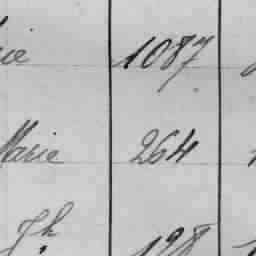 1087
Marie 264
Jh 198